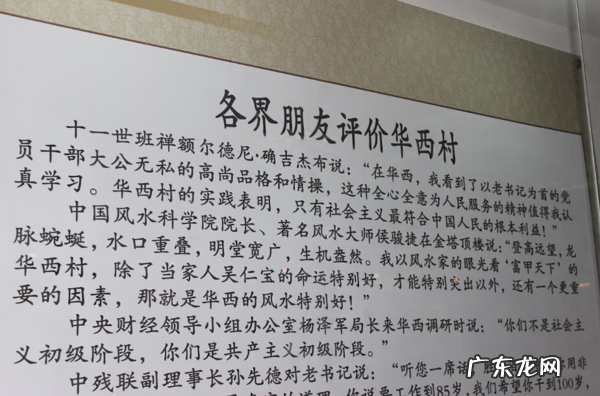 各界朋友评价华西村
十一世班禅额尔德尼·确吉杰布说：“在华西，我看到了以老书记为首的党
员干部大公无私的高尚品格和情操，这种全心全意为人民服务的精神值得我认
真学习。华西村的实践表明，只有社会主义最符合中国人民的根本利益！”
中国风水科学院院长、著名风水大师侯骏捷在金塔顶楼说：“登高远望，龙
脉蜿蜒，水口重叠，明堂宽广，生机盎然。我以风水家的眼光看‘富甲天下’的
华西村，除了当家人吴仁宝的命运特别好，才能特别突出以外，还有一个更重
要的因素，那就是华西的风水特别好！”
中央财经领导小组办公室杨泽军局长来华西调研时说：“你们不是社会主
义初级阶段，你们是共产主义初级阶段。”
中残联副理事长孙先德对老书记说：“听您一席话，用非
的道理，你说要工作到85岁，我们希望你干到100岁，
广东龙网